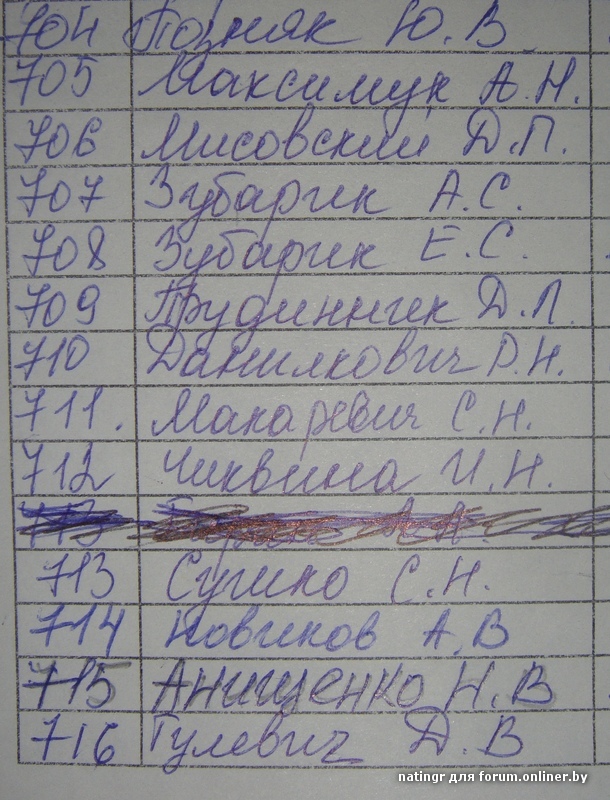 704 Позняк Ю.В
705 Максимук А.Н.
706 Мисовский Д.П.
707 Зубарик А.С.
708 Зубарик Е.С.
709 Д.Л.
710 Данилкович Р.Н.
711. Макаревич С.Н.
712 Чиквина И.Н.
713
713 Сушко С.Н.
714 Новиков А.В
715 Анищенко Н.В
716 Гулевич Д.В
natingr для forum.onliner.by